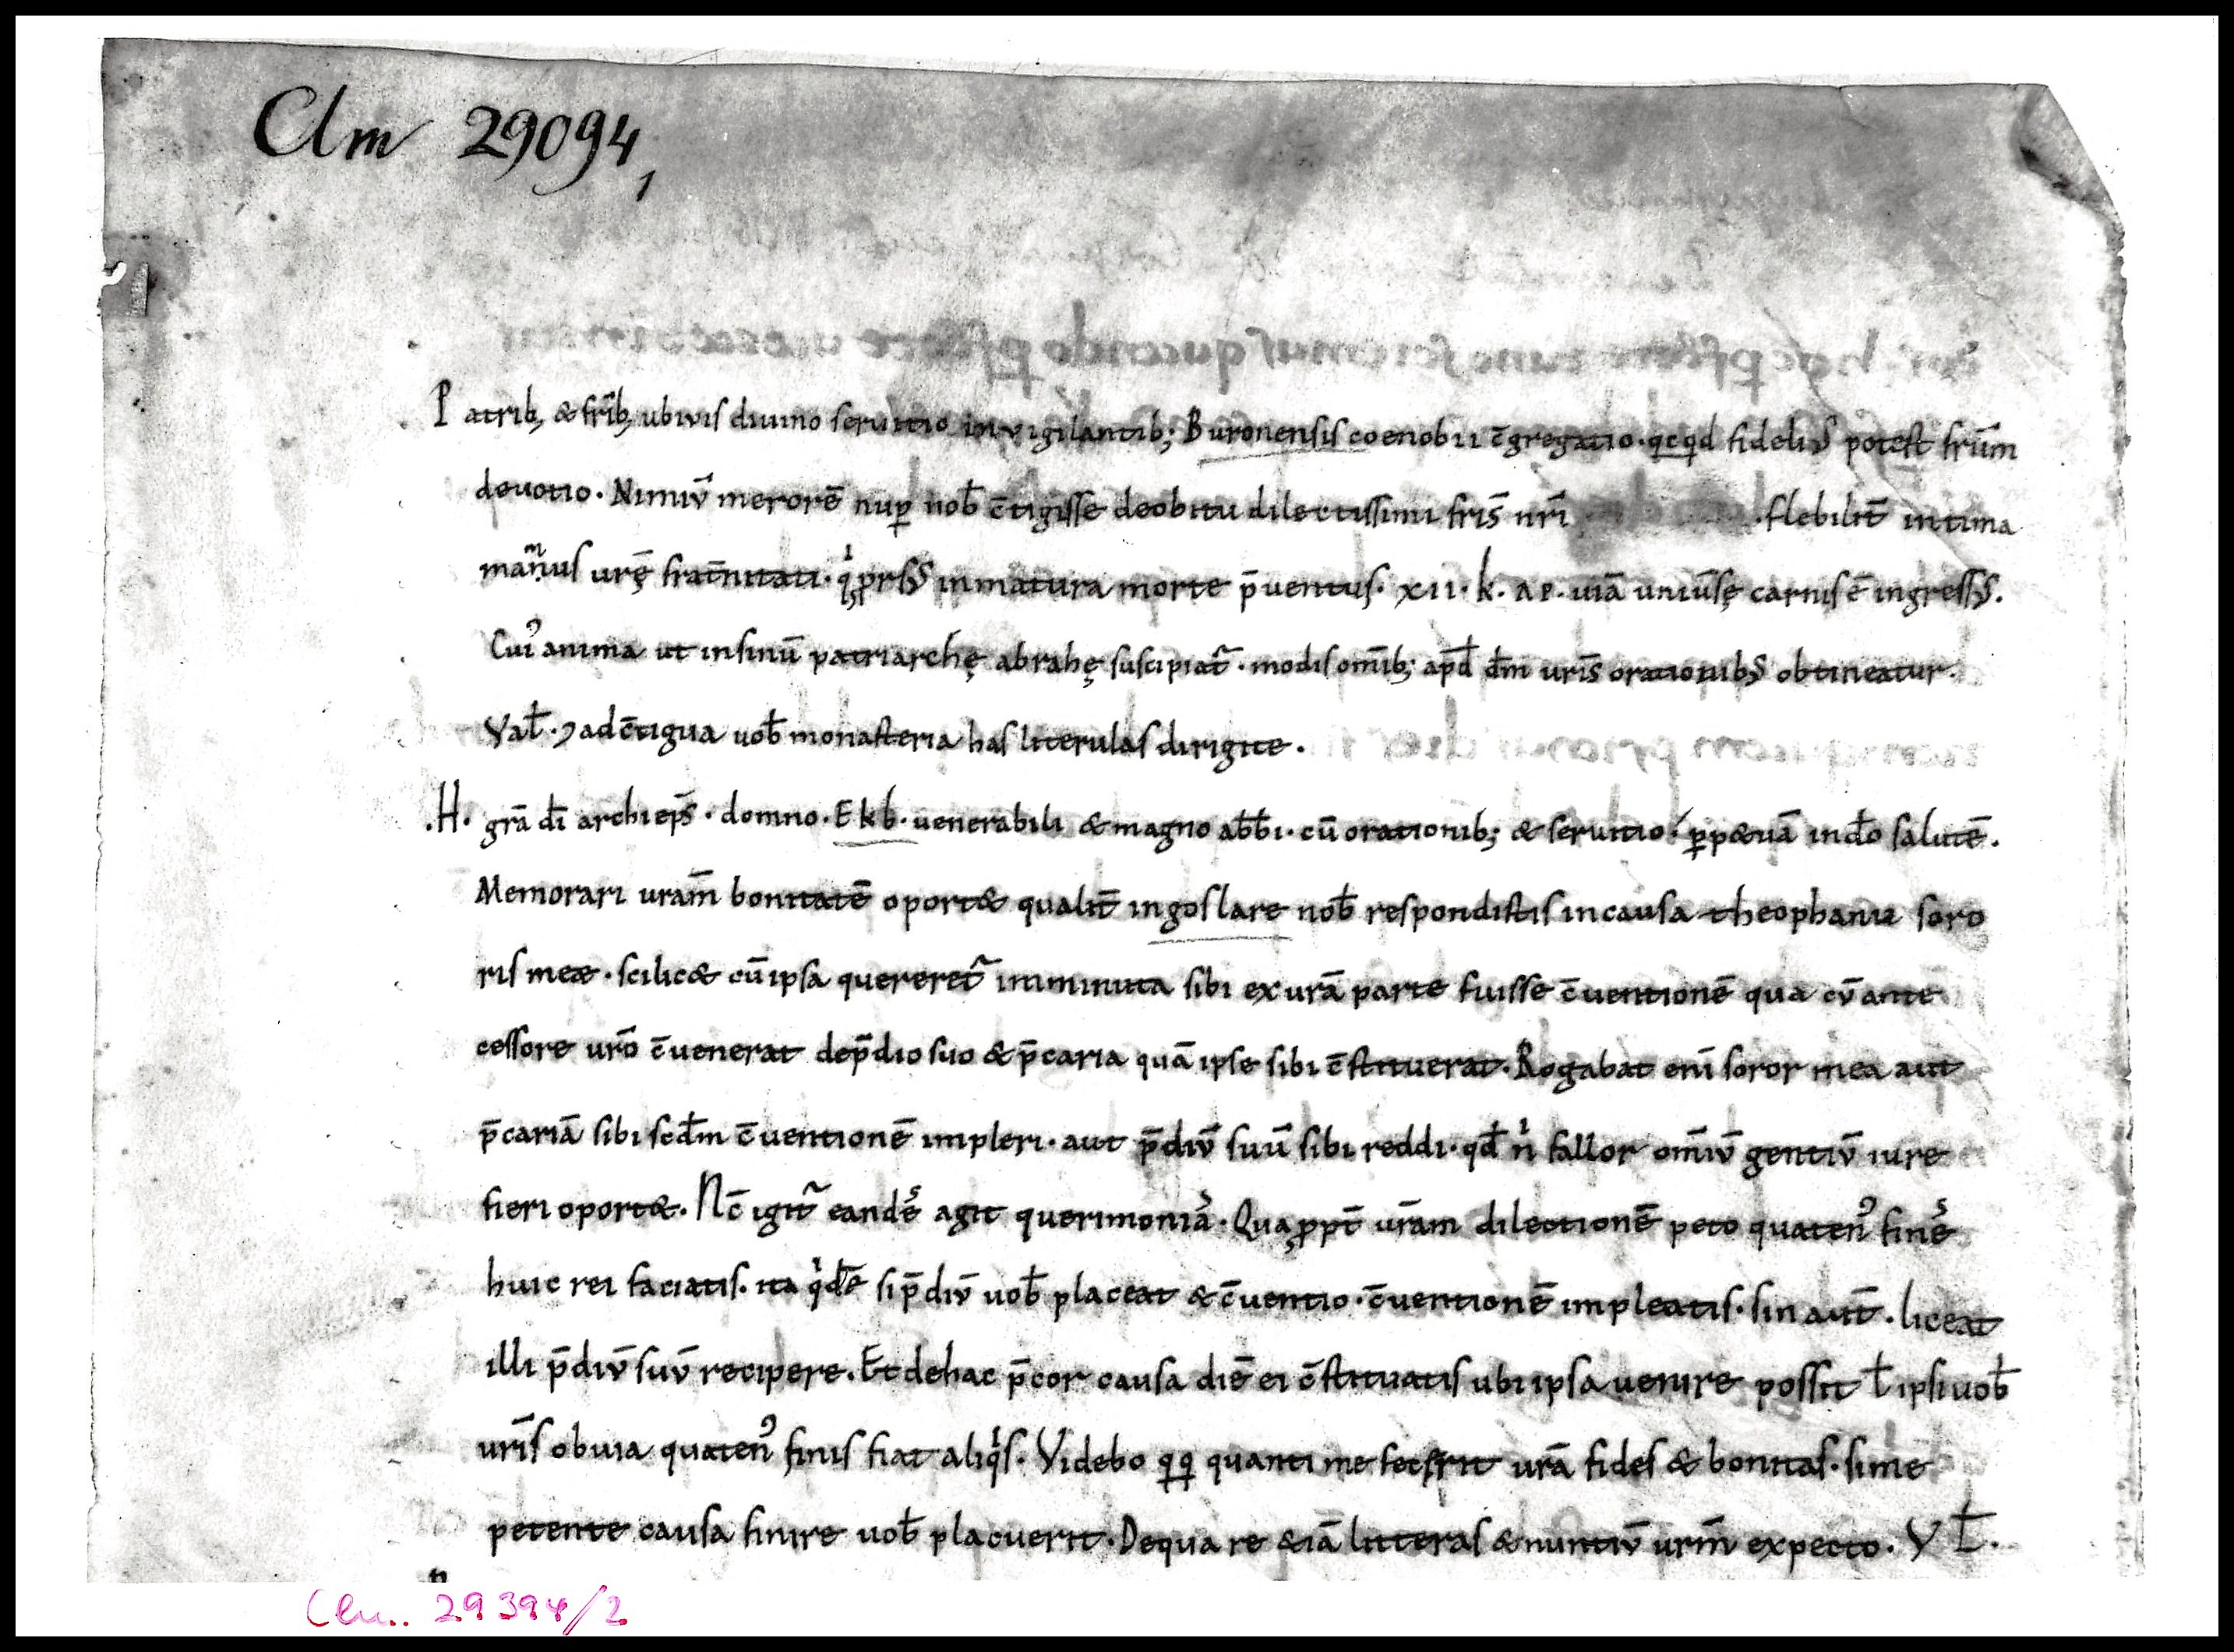 Clm 29094,
1
Patrib; & fr̄ib; ubivis divino servitio invigilantib; Buronensis coenobii c̄gregatio · qcqd fidelis potest fr̄um
devotio · Nimiv̄ merorē nup̱ nob̄ c̄tigisse deobitu dilectissimi fr̄is nr̄i · flebilit̄ intima
man̄us vrę̄ frat̄nitati · qͥ ꝓrsꝰ inmatura morte p̄ventus · xii · k · ap · viā univ̄sę carnis ē ingressꝰ.
Cuiꝰ anima ut insinū patriarchę abrahę suscipiat᷑ · modis om̄ib; apd̄ dm̄ vr̄is orationibꝰ obtineatur.
Val̄ · ⁊ adc̄tigua vob̄ monasteria has literulas dirigite.
.H. grā dī archiep̄s · domno · Ekb · venerabili & magno ab̄bi · cū orationib; & servitio · ꝑp&uā ind̄o salutē.
Memorari vram̄ bonitatē oport& qualit̄ ingoslare nob̄ respondistis incausa theophanię soro
ris meæ · scilic& cū ipsa quereret᷑ imminuta sibi exvrā parte fuisse c̄ventionē qua cv̄ ante
cessore vr̄o c̄venerat dep̄dio suo & p̄caria quā ipse sibi c̄stituerat · Rogabat enī soror mea aut
p̄cariā sibi scd̄m c̄ventionē impleri · aut p̄div̄ suū sibi reddi · qd̄ nͥ fallor om̄iv̄ gentiv̄ iure
fieri oport& · Nc̄ igit᷑ eandē agit querimoniā · Quaꝓpt̄ vr̄am dilectionē peto quatenꝰ finē
huic rei faciatis · ita qͥdē si p̄div̄ vob̄ placeat & c̄ventio · c̄ventionē impleatis · sin aut̄ · liceat
illi p̄div̄ suv̄ recipere. Et dehac p̄cor causa diē ei c̄stituatis ubi ipsa venire possit ł ipsi vob̄
vr̄is obvia quatenꝰ finis fiat aliqͥs · Videbo qͥqͥ quanti me fecerit vrā fides & bonitas · si me
petente causā finire vob̄ placuerit · Dequa re &iā litteras & nuntiv̄ vrm̄ expecto · V L̄.
Clm.. 29394/2